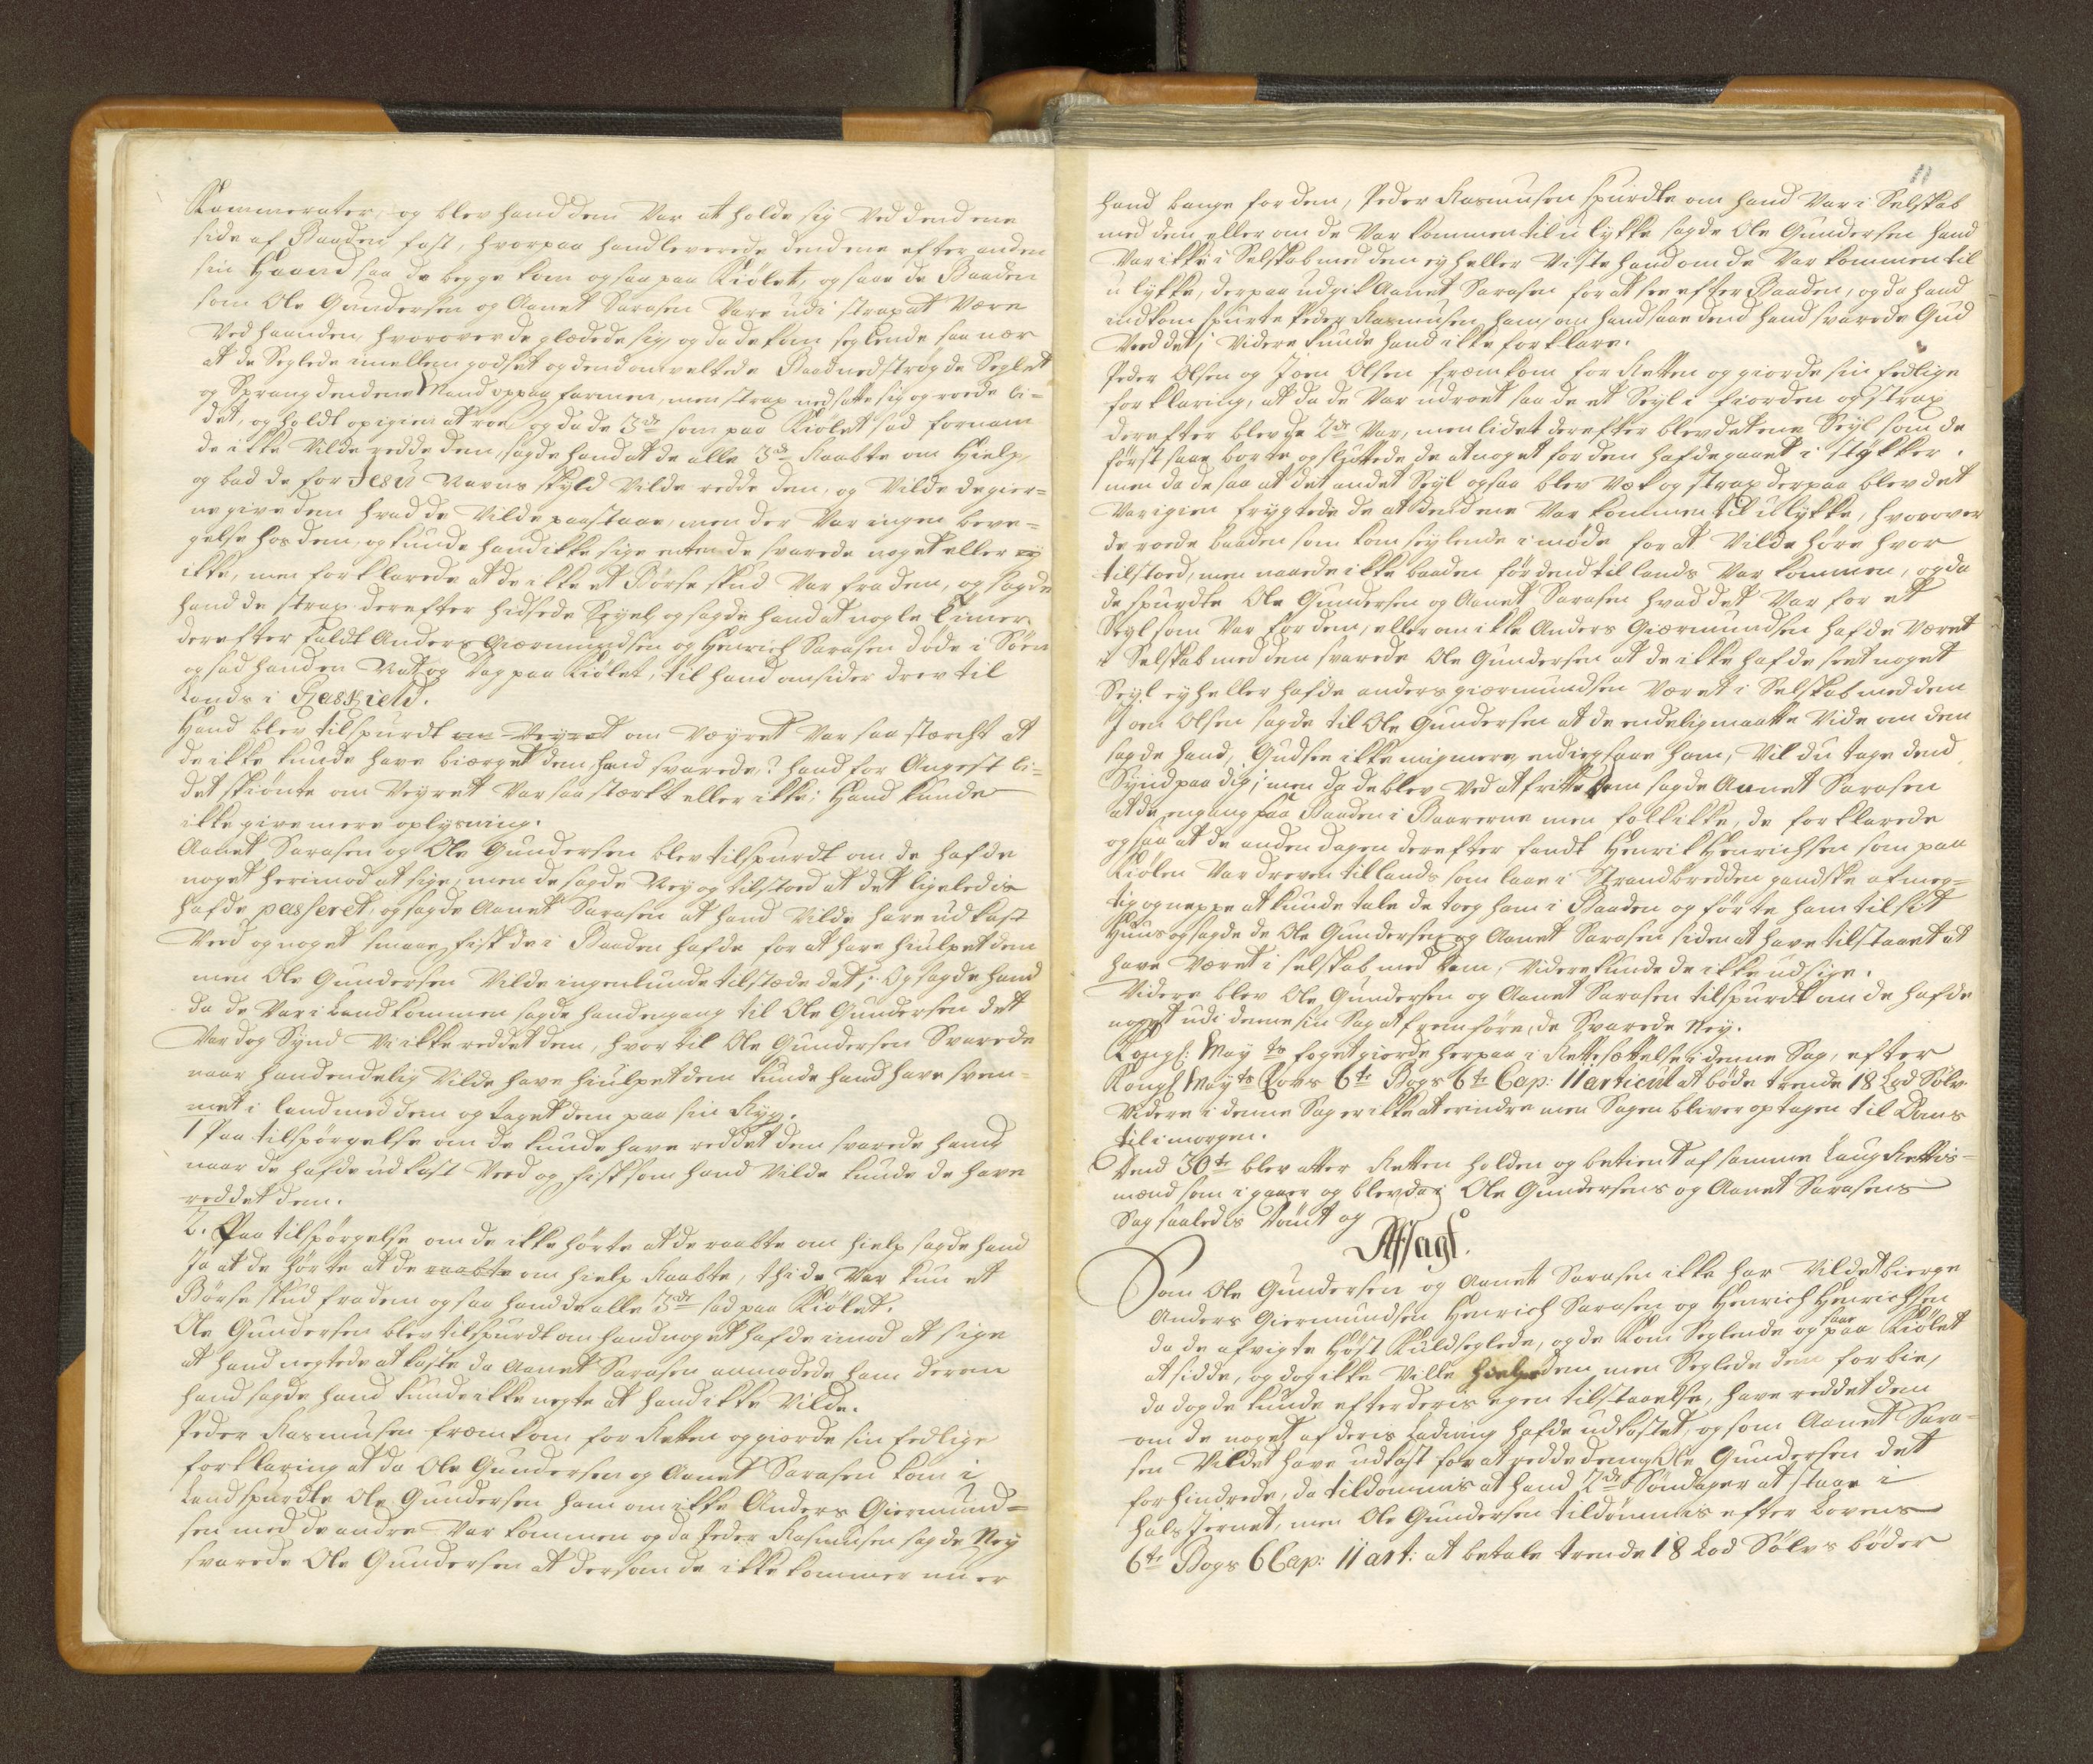 Kammerater, og blev hand dem var at holde sig ved dend ene
side af Baaden fast, hvorpaa hand leverede dend ene efter anden
sin Haand saa de begge kom og saa paa Kiølet, og saae de Baaden
som Ole Gundersen og Aanet Sarasen vare udi strax at være
ved haanden, hvorover de glædede sig, og da de kom seglende saa nær
at de Seglede imellem godset og dend omveltede Baad nedstrøg de Seglet
og Sprang dend ene Mand op paa farmen, men strax nedsatte sig og roede li-
det, og holdt op igien at roe, og da de 3de som paa Kiølet sad fornam
de ikke vilde redde dem, sagde hand at de alle 3de Raabte om Hielp,
og bad de for Jesu Navns skyld vilde redde dem, og vilde de gier-
ne give dem hvad de vilde paastaae, men der var ingen beve-
gelse hos dem, og kunde hand ikke sige enten de svarede noget eller ey
ikke, men forklarede at de ikke et Børse skud var fra dem, og sagde
hand de strax derefter hidsede Seyel og sagde hand at nogle Timer
derefter faldt Anders Giærmundsen og Henrich Sarasen døde i Søen
og sad hand en Nat og Dag paa Kiølet, til hand omsider drev til
Lands i
Hand blev tilspurdt om Veyret om Væyret var saa stærcht at
de ikke kunde have biærget dem hand svarede? hand for Angest li-
det skiønte om Veyret var saa stærkt eller ikke; Hand kunde
ikke give mere oplysning.
Aanet Sarasen og Ole Gundersen blev tilspurdt om de hafde
noget herimod at sige, men de sagde Ney og tilstoed at det ligeledis
hafde passeret, og sagde Aanet Sarasen at hand vilde have udkast
Veed og noget smaae fisk de i Baaden hafde for at have hiulpet dem
men Ole Gundersen vilde ingenlunde tilstæde det; Og sagde hand
da de var i Land kommen sagde hand engang til Ole Gundersen det
var dog Synd vi ikke reddet dem, hvor til Ole Gundersen Svarede
naar hand endelig vilde have hiulpet dem kunde hand have svem-
met i land med dem og taget dem paa sin Ryg.
1 Paa tilspørgelse om de kunde have reddet dem svarede hand
naar de hafde udkast Veed og fisk som hand vilde kunde de have
reddet dem.
2. Paa tilspørgelse om de ikke hørte at de raabte om hielp sagde hand
Ja at de hørte at de raabte om hielp Raabte, thi de var kun et
Børse skud fra dem og saa hand de alle 3de sad paa Kiølet.
Ole Gundersen blev tilspurdt om hand noget hafde imod at sige
at hand negtede at kaste da Aanet Sarasen anmodede ham derom
hand sagde hand kunde ikke negte at hand ikke vilde.
Peder Rasmusen fremkom for Retten og giorde sin Eedlige
forklaring at da Ole Gundersen og Aanet Sarasen kom i
Land spurdte Ole Gundersen ham om ikke Anders Giermund-
sen med de andre var kommen og da Peder Rasmusen sagde Ney
svarede Ole Gundersen at dersom de ikke kommer nu er
11
hand bange for dem, Peder Rasmusen spurdte om hand var i Selskab
med dem eller om de var kommen til ulykke sagde Ole Gundersen hand
var ikke i Selskab med dem ey heller viste hand om de var kommen til
ulykke, derpaa udgik Aanet Sarasen for at see efter Baaden, og da hand
indkom spurte Peder Rasmusen ham, om hand saae dend hand svarede Gud
veed det; videre kunde hand ikke forklare.
Peder Olsen og Joen Olsen fremkom for Retten og giorde sin Eedlige
forklaring, at da de var udroet saa de et Seyl i fiorden og strax
derefter blev de 2de var, men lidet derefter blev det ene Seyl som de
først saae borte og sluttede de at noget for dem hafde gaaet i stykker.
men da de saa at det andet Seyl ogsaa blev væk og strax derpaa blev det
var igien frygtede de at dend ene var kommen til ulykke, hvorover
de roede baaden som kom seylende i møde for at vilde høre hvor
tilstoed, men naaede ikke baaden før dend til lands var kommen, og da
de spurdte Ole Gundersen og Aanet Sarasen hvad det var for et
Seyl som var for dem, eller om ikke Anders Giærmundsen hafde været
i Selskab med dem svarede Ole Gundersen at de ikke hafde seet noget
Seyl ey heller hafde anders giærmundsen været i Selskab med dem
Joen Olsen sagde til Ole Gundersen at de endelig maatte vide om dem
sagde hand, Gud see ikke mig mere end jeg saae ham, vil du tage dend
Synd paa dig; men da de blev ved at fritte dem sagde Aanet Sarasen
at de engang saa Baaden i Baarerne men folk ikke, de forklarede
og saa at de anden dagen derefter fandt Henrik Henrichsen som paa
Kiølen var dreven til lands som laae i Strandbredden gandske afmeg-
tig og neppe at kunde tale de tog ham i Baaden og førte ham til sit
Huus og sagde de Ole Gundersen og Aanet Sarasen siden at have tilstaaet at
have været i selskab med dem, videre kunde de ikke udsige.
Videre blev Ole Gundersen og Aanet Sarasen tilspurdt om de hafde
noget udi denne sin Sag at fremføre, de Svarede Ney.
Kongl: Mayts foget giorde herpaa i Rettesættelse i denne Sag, efter
Kongl Mayts Lovs 6te Bogs 6te Cap: 11 articul at bøde trende 18 Lod Sølv
Videre i denne Sag er ikke at erindre men Sagen bliver optagen til Doms
til i morgen.
Dend 30te blev atter Retten holden og betient af samme Laug Rettis-
mænd som i gaaer og blev da i Ole Gundersens og Aanet Sarasens
Sag saaledis dømt og
Afsagt.
Som Ole Gundersen og Aanet Sarasen ikke har vildet bierge
Anders Giermundsen Henrich Sarasen og Henrich Henrichsen
da de afvigte Høst Kuldseglede, og de kom Seglende og saae paa Kiølet
at sidde, og dog ikke ville hielpe dem men Seglede dem forbie,
da dog de kunde efter deris egen tilstaaelse, have reddet dem
om de noget af deris Ladning hafde udkastet, og som Aanet Sara-
sen vildet have udkast for at redde dem og Ole Gundersen det
forhindrede, da tildømmis at hand 2de Søndager at staae i
Hals Jernet, men Ole Gundersen tildømmis efter Lovens
6te Bogs 6 Cap: 11 art: at betale trende 18 Lod Sølvs bøder